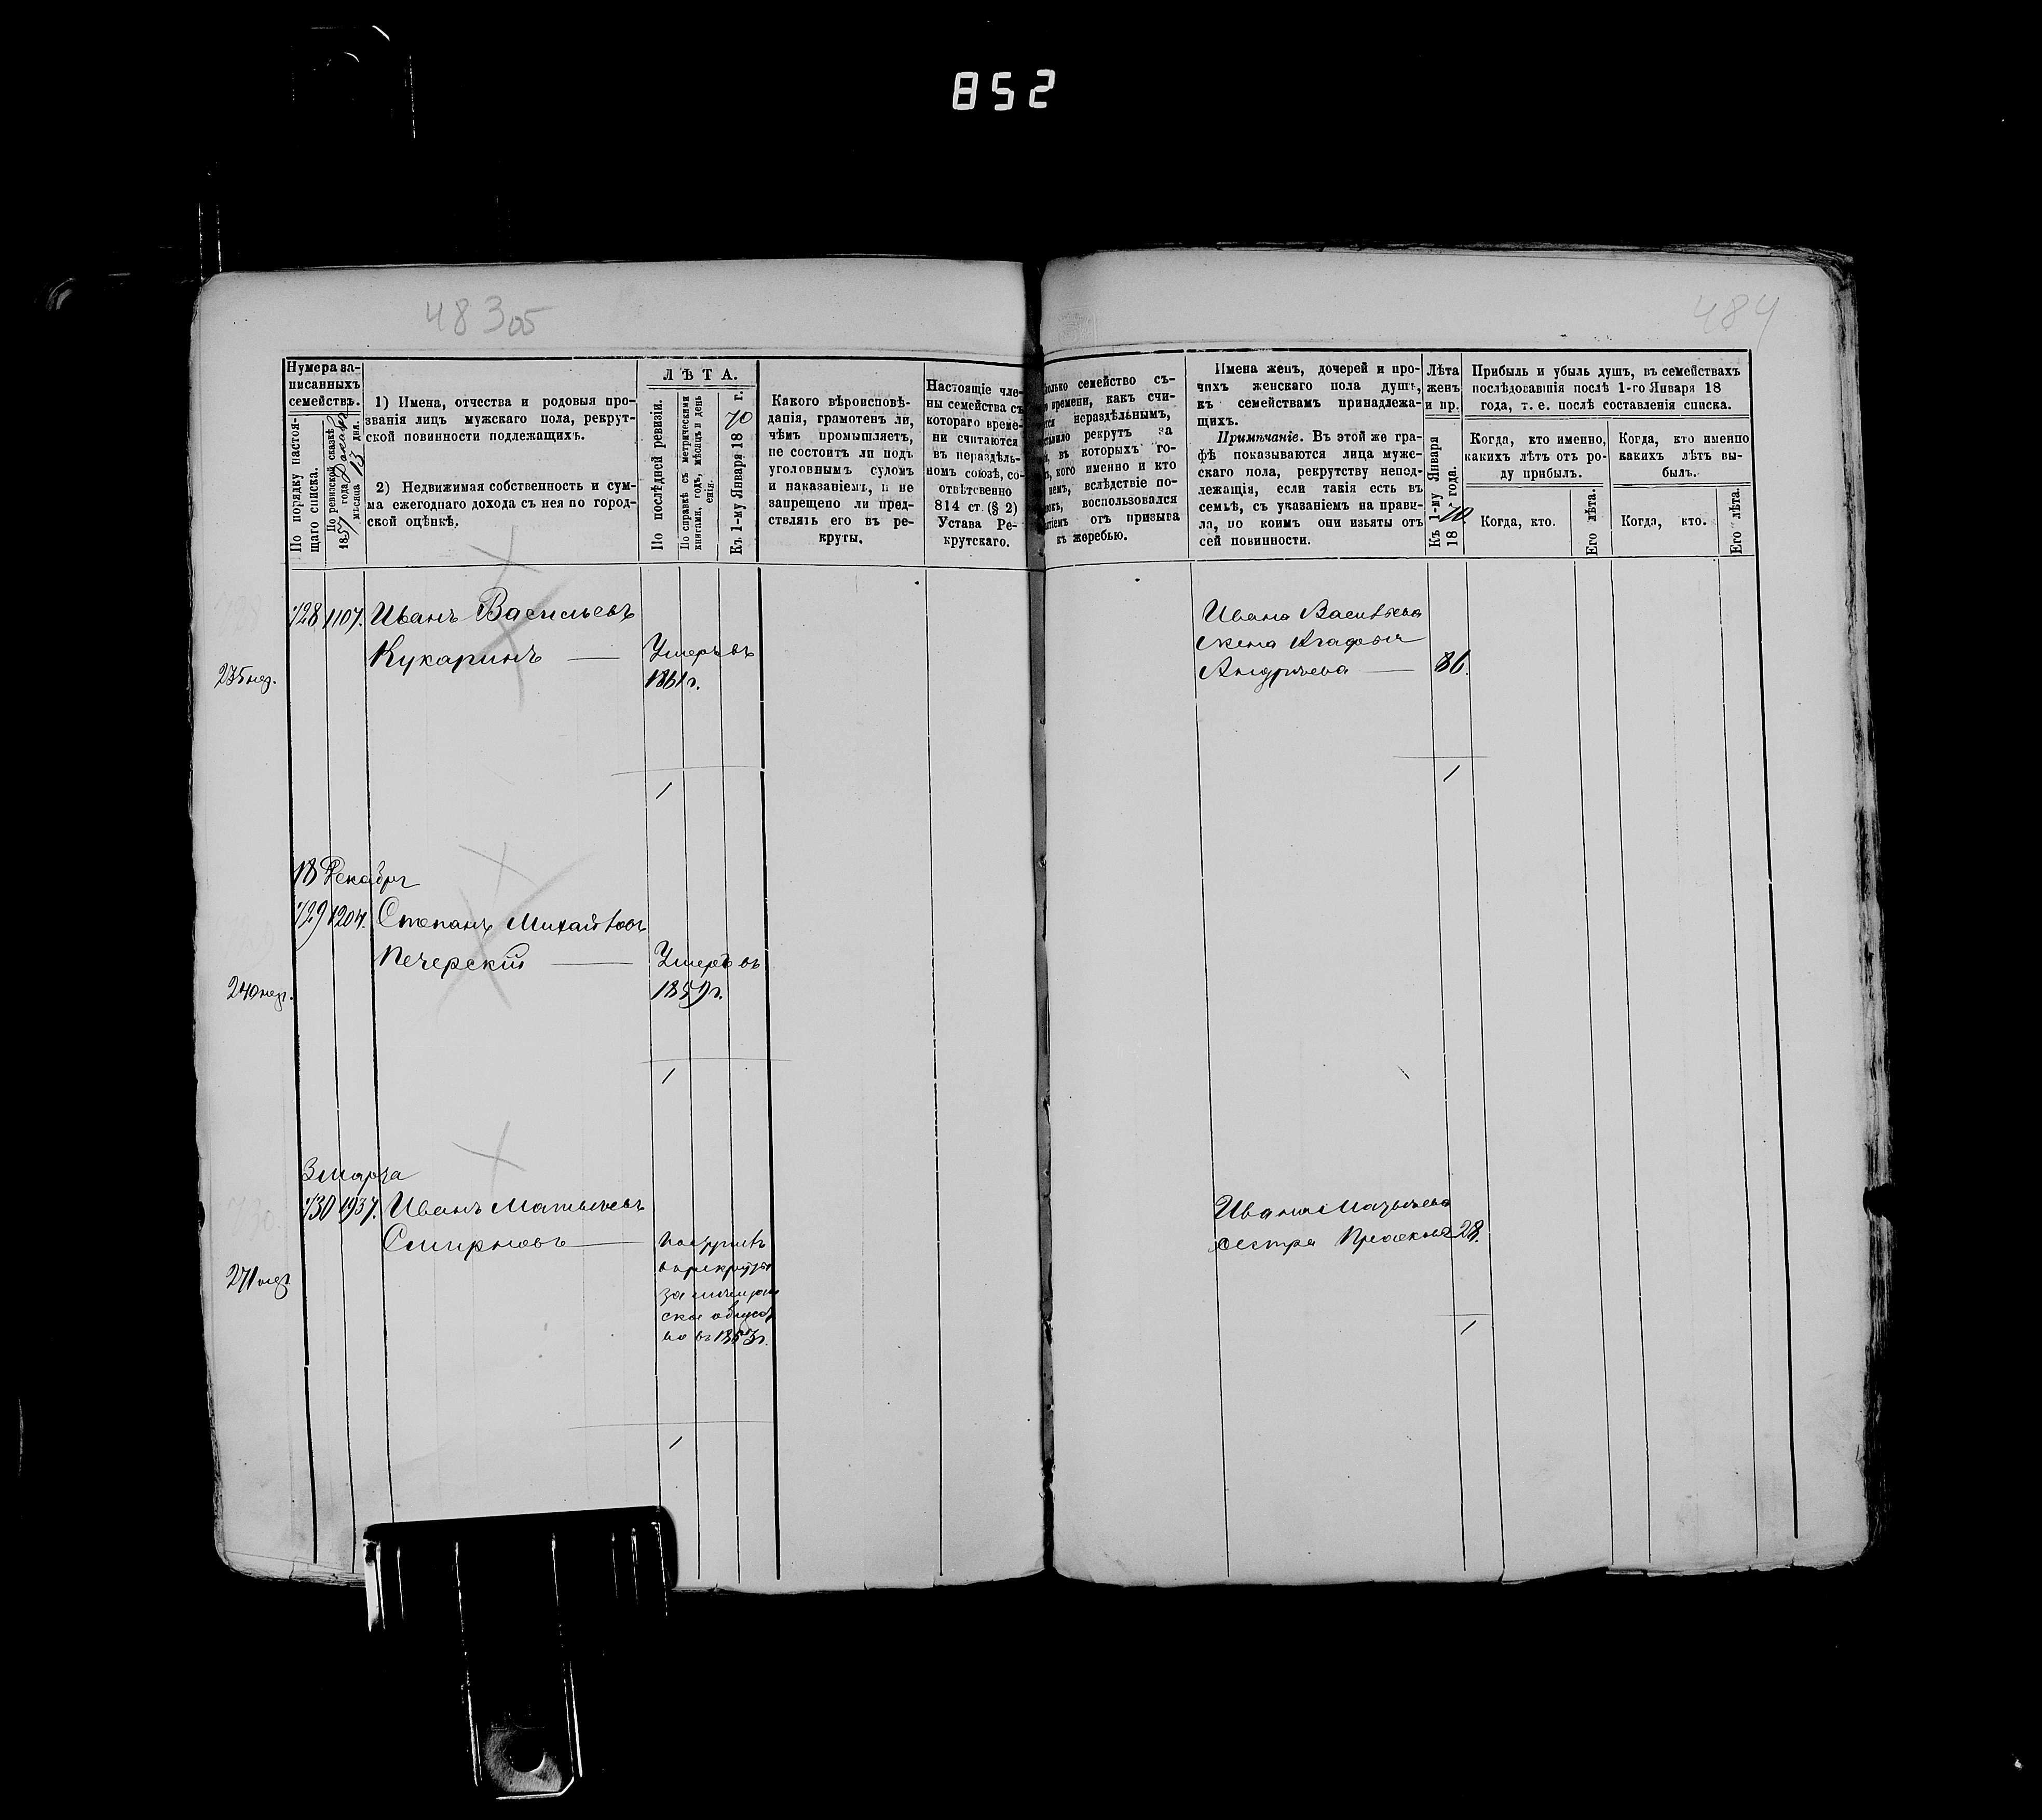 852
48305
484
Нумера за-
писанныхъ
семействъ.
По порядку настоя-
щаго списка.
По ревизской сказкѣ
1857 года
мѣсяца 13 дня.
1) Имена, отчества и родовыя про-
званія лицъ мужскаго пола, рекрут-
ской повинности подлежащихъ.
2) Недвижимая собственность и сум-
ма ежегоднаго дохода съ нея по город-
ской оцѣнкѣ.
ЛѢТА.
По послѣдней ревизіи.
По справкѣ съ метрическими
книгами, годъ, мѣсяцъ и день
Къ 1-му Января 1870 г.
Какого вѣроисповѣ-
данія, грамотенъ ли,
чѣмъ промышляетъ,
не состоитъ ли подъ
уголовнымъ судомъ
и наказаніемъ, и не
запрещено ли пред-
ствлять его въ ре-
круты.
Настоящіе чле-
ны семейства съ
котораго време-
ни считаются
въ нераздѣль-
номъ союзѣ, со-
отвѣтственно
814 ст. (§ 2)
Устава Ре-
крутскаго.
семейство съ-
времени, какъ счи-
нераздѣльнымъ,
рекрутъ за
въ которыхъ го-
кого именно и кто
вслѣдствіе по-
воспользовался
отъ призыва
къ жеребью.
Имена женъ, дочерей и про-
чихъ женскаго пола душъ,
къ семействамъ принадлежа-
щихъ.
Примѣчаніе. Въ этой же гра-
фѣ показываются лица муже-
скаго пола, рекрутству непод-
лежащія, если такія есть въ
семьѣ, съ указаніемъ на прави-
ла, по коимъ они изъяты отъ
сей повинности.
Лѣта
женъ
и пр.
Къ 1-му Января
1870 года.
Прибыль и убыль душъ, въ семействахъ
послѣдовавшія послѣ 1-го Января 18
года, т. е. послѣ составленія списка.
Когда, кто именно,
какихъ лѣтъ отъ ро-
ду прибылъ.
Когда, кто именно
какихъ лѣтъ вы-
былъ.
Когда, кто.
Его лѣта.
Когда, кто.
Его лѣта.
728 1107. Иванъ Васильевъ
Кукаринъ — Умеръ въ
1861 г.
235 нед.
Ивана Васильева
жена Агафья
Андреева — 86.
1
1
18 Декабря
729 1204. Степанъ Михайловъ
Печерскій — Умеръ въ
1859 г.
240 нед.
1
3 марта
730 1937. Иванъ Матвѣевъ
Смирновъ —
за
271 нед.
Ивана Матвѣева
сестра Прасковья 28.
1
1